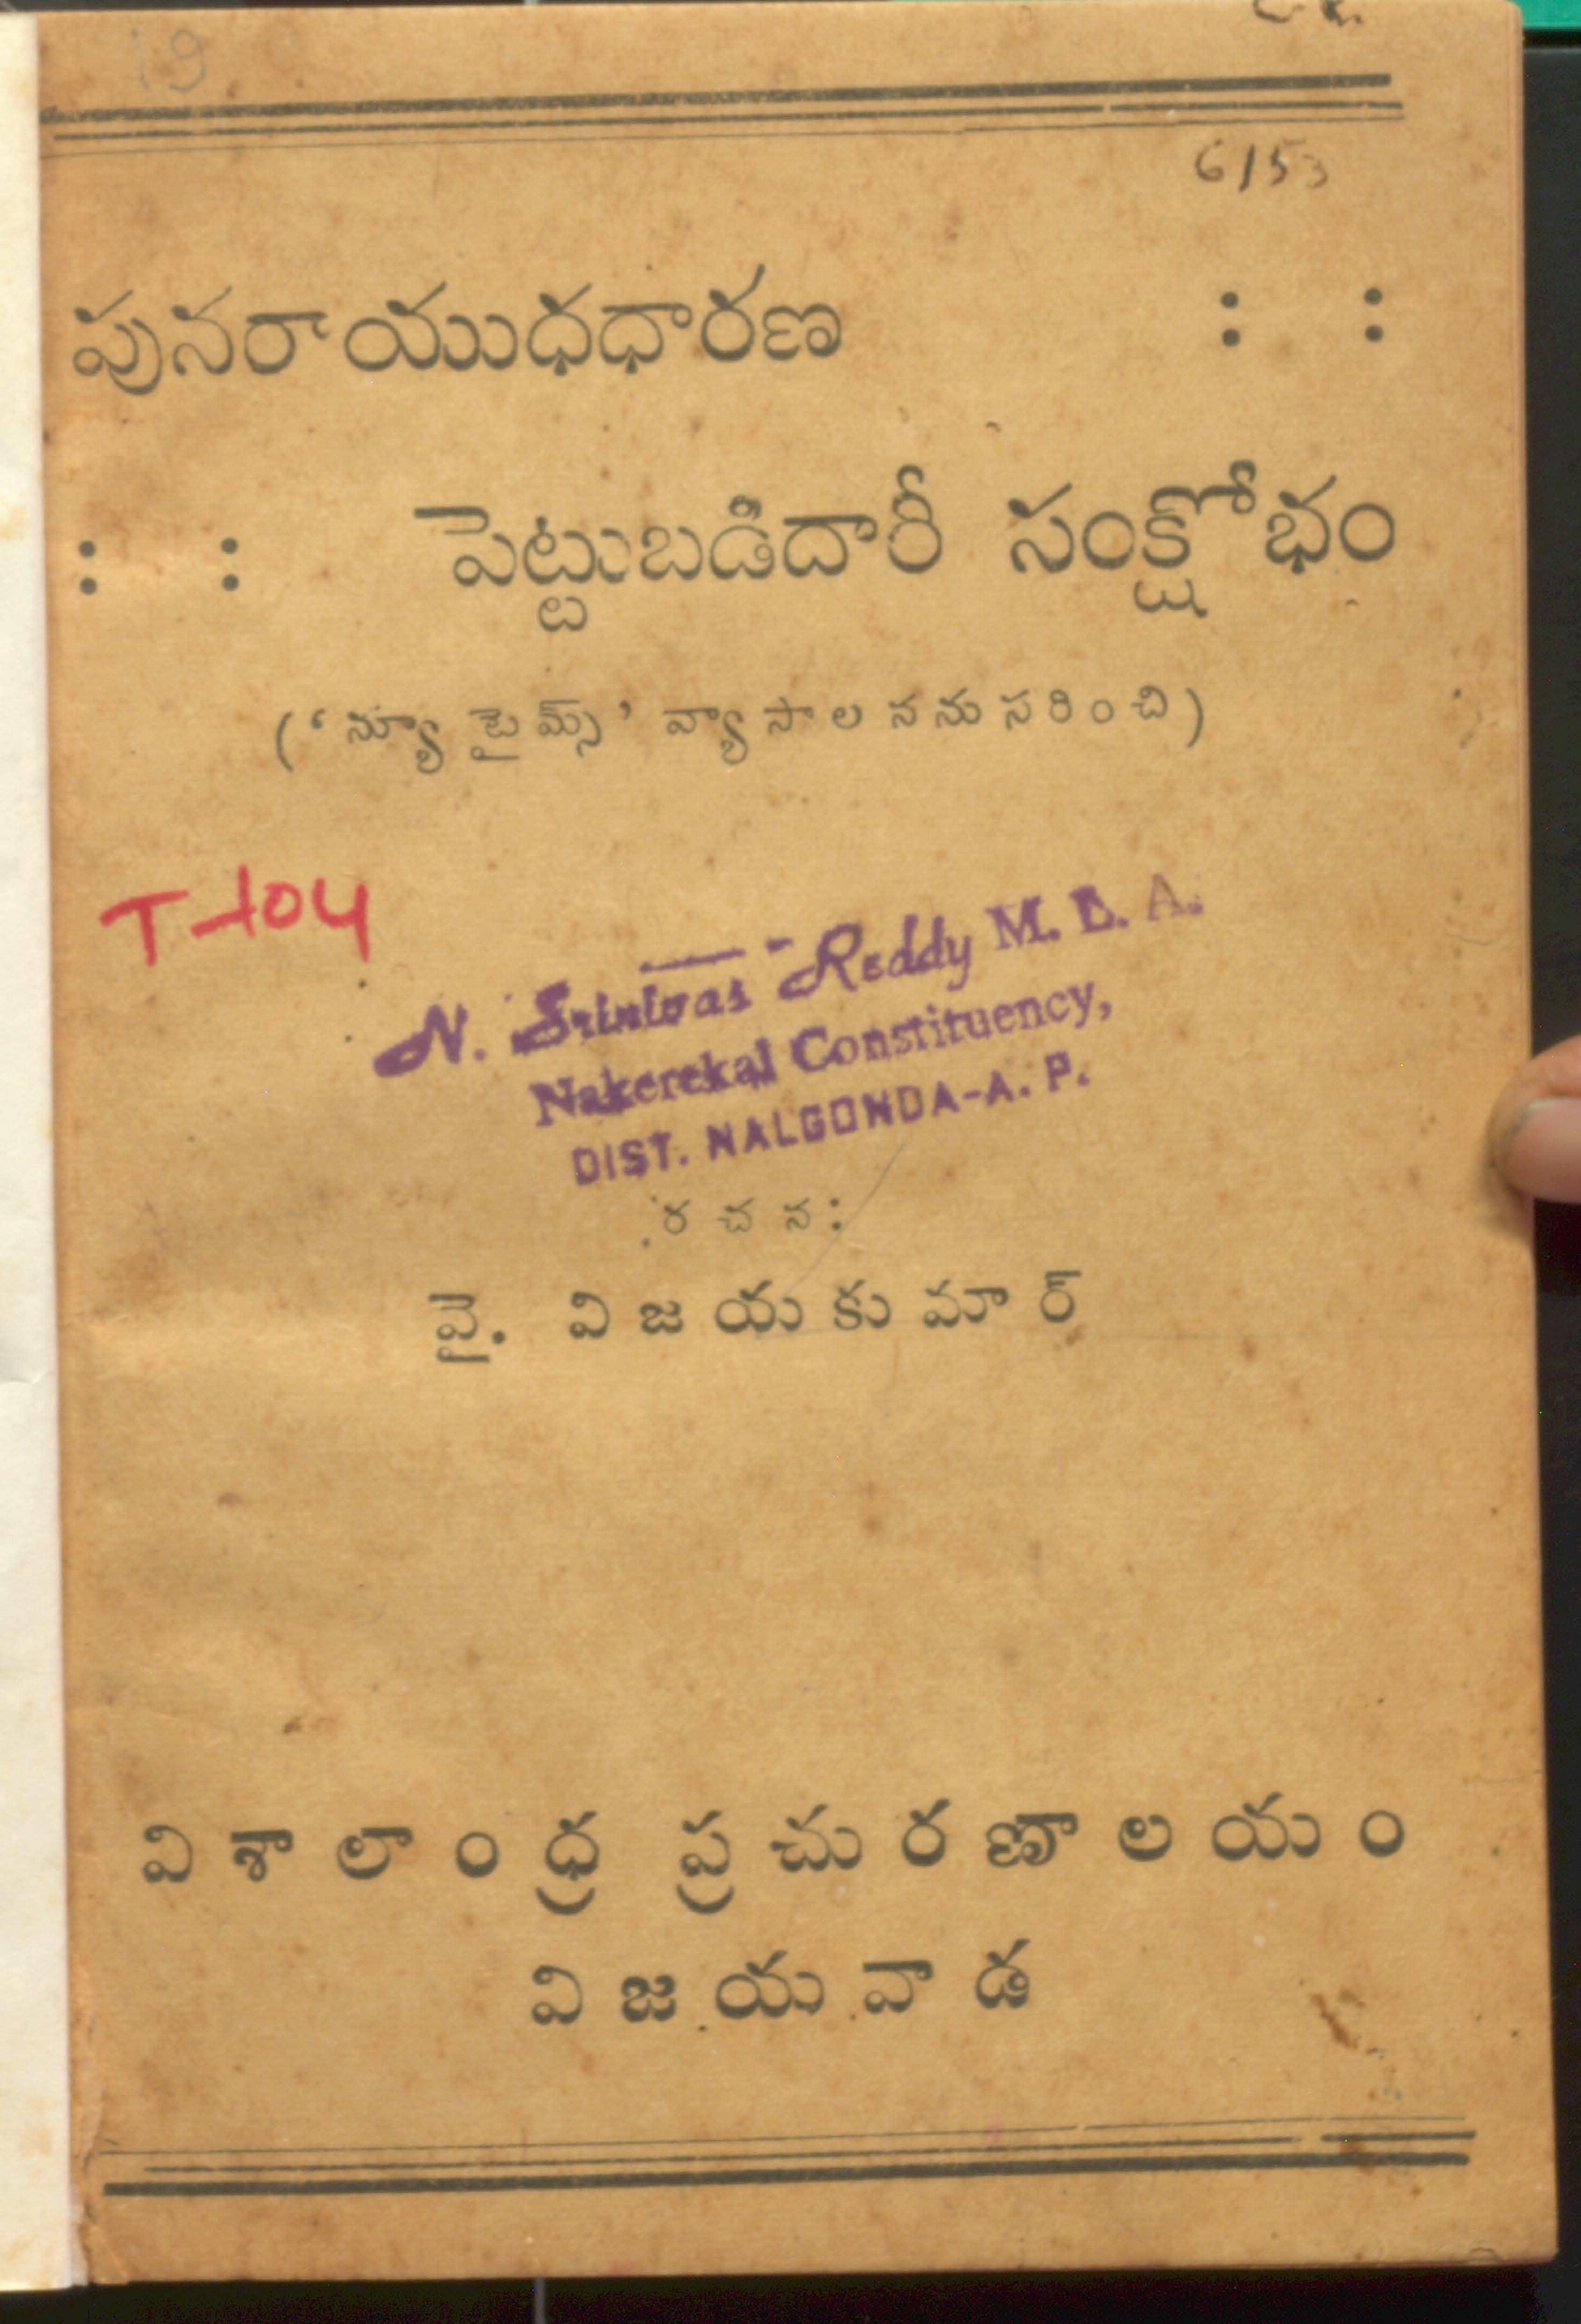 19
6153
పునరాయుధధారణ : :
: : పెట్టుబడిదారీ సంక్షోభం
(‘న్యూ టైమ్స్’ వ్యాసాల ననుసరించి)
T-104
N. Srinivas Reddy M. L. A.
Nakerekal Constituency,
DIST. NALGONDA-A. P.
రచన:
వై. విజయకుమార్
విశాలాంధ్ర ప్రచురణాలయం
విజయవాడ